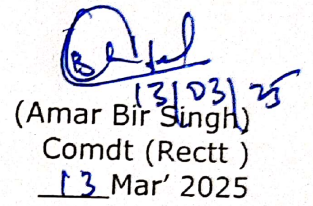 13/03/25
(Amar Bir Singh)
Comdt (Rectt )
13 Mar' 2025